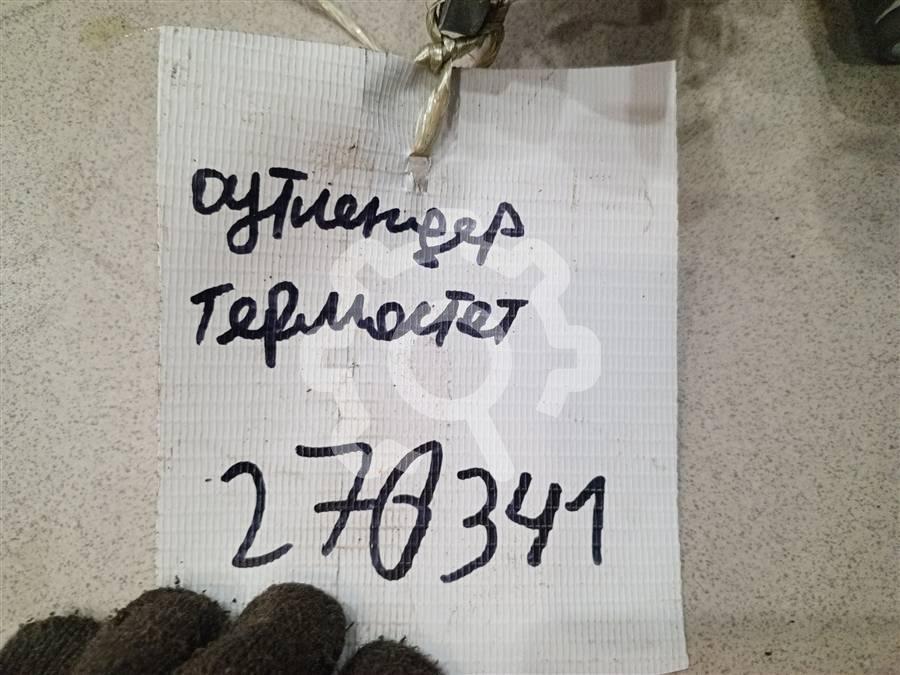 оутлендер
термостет
270341